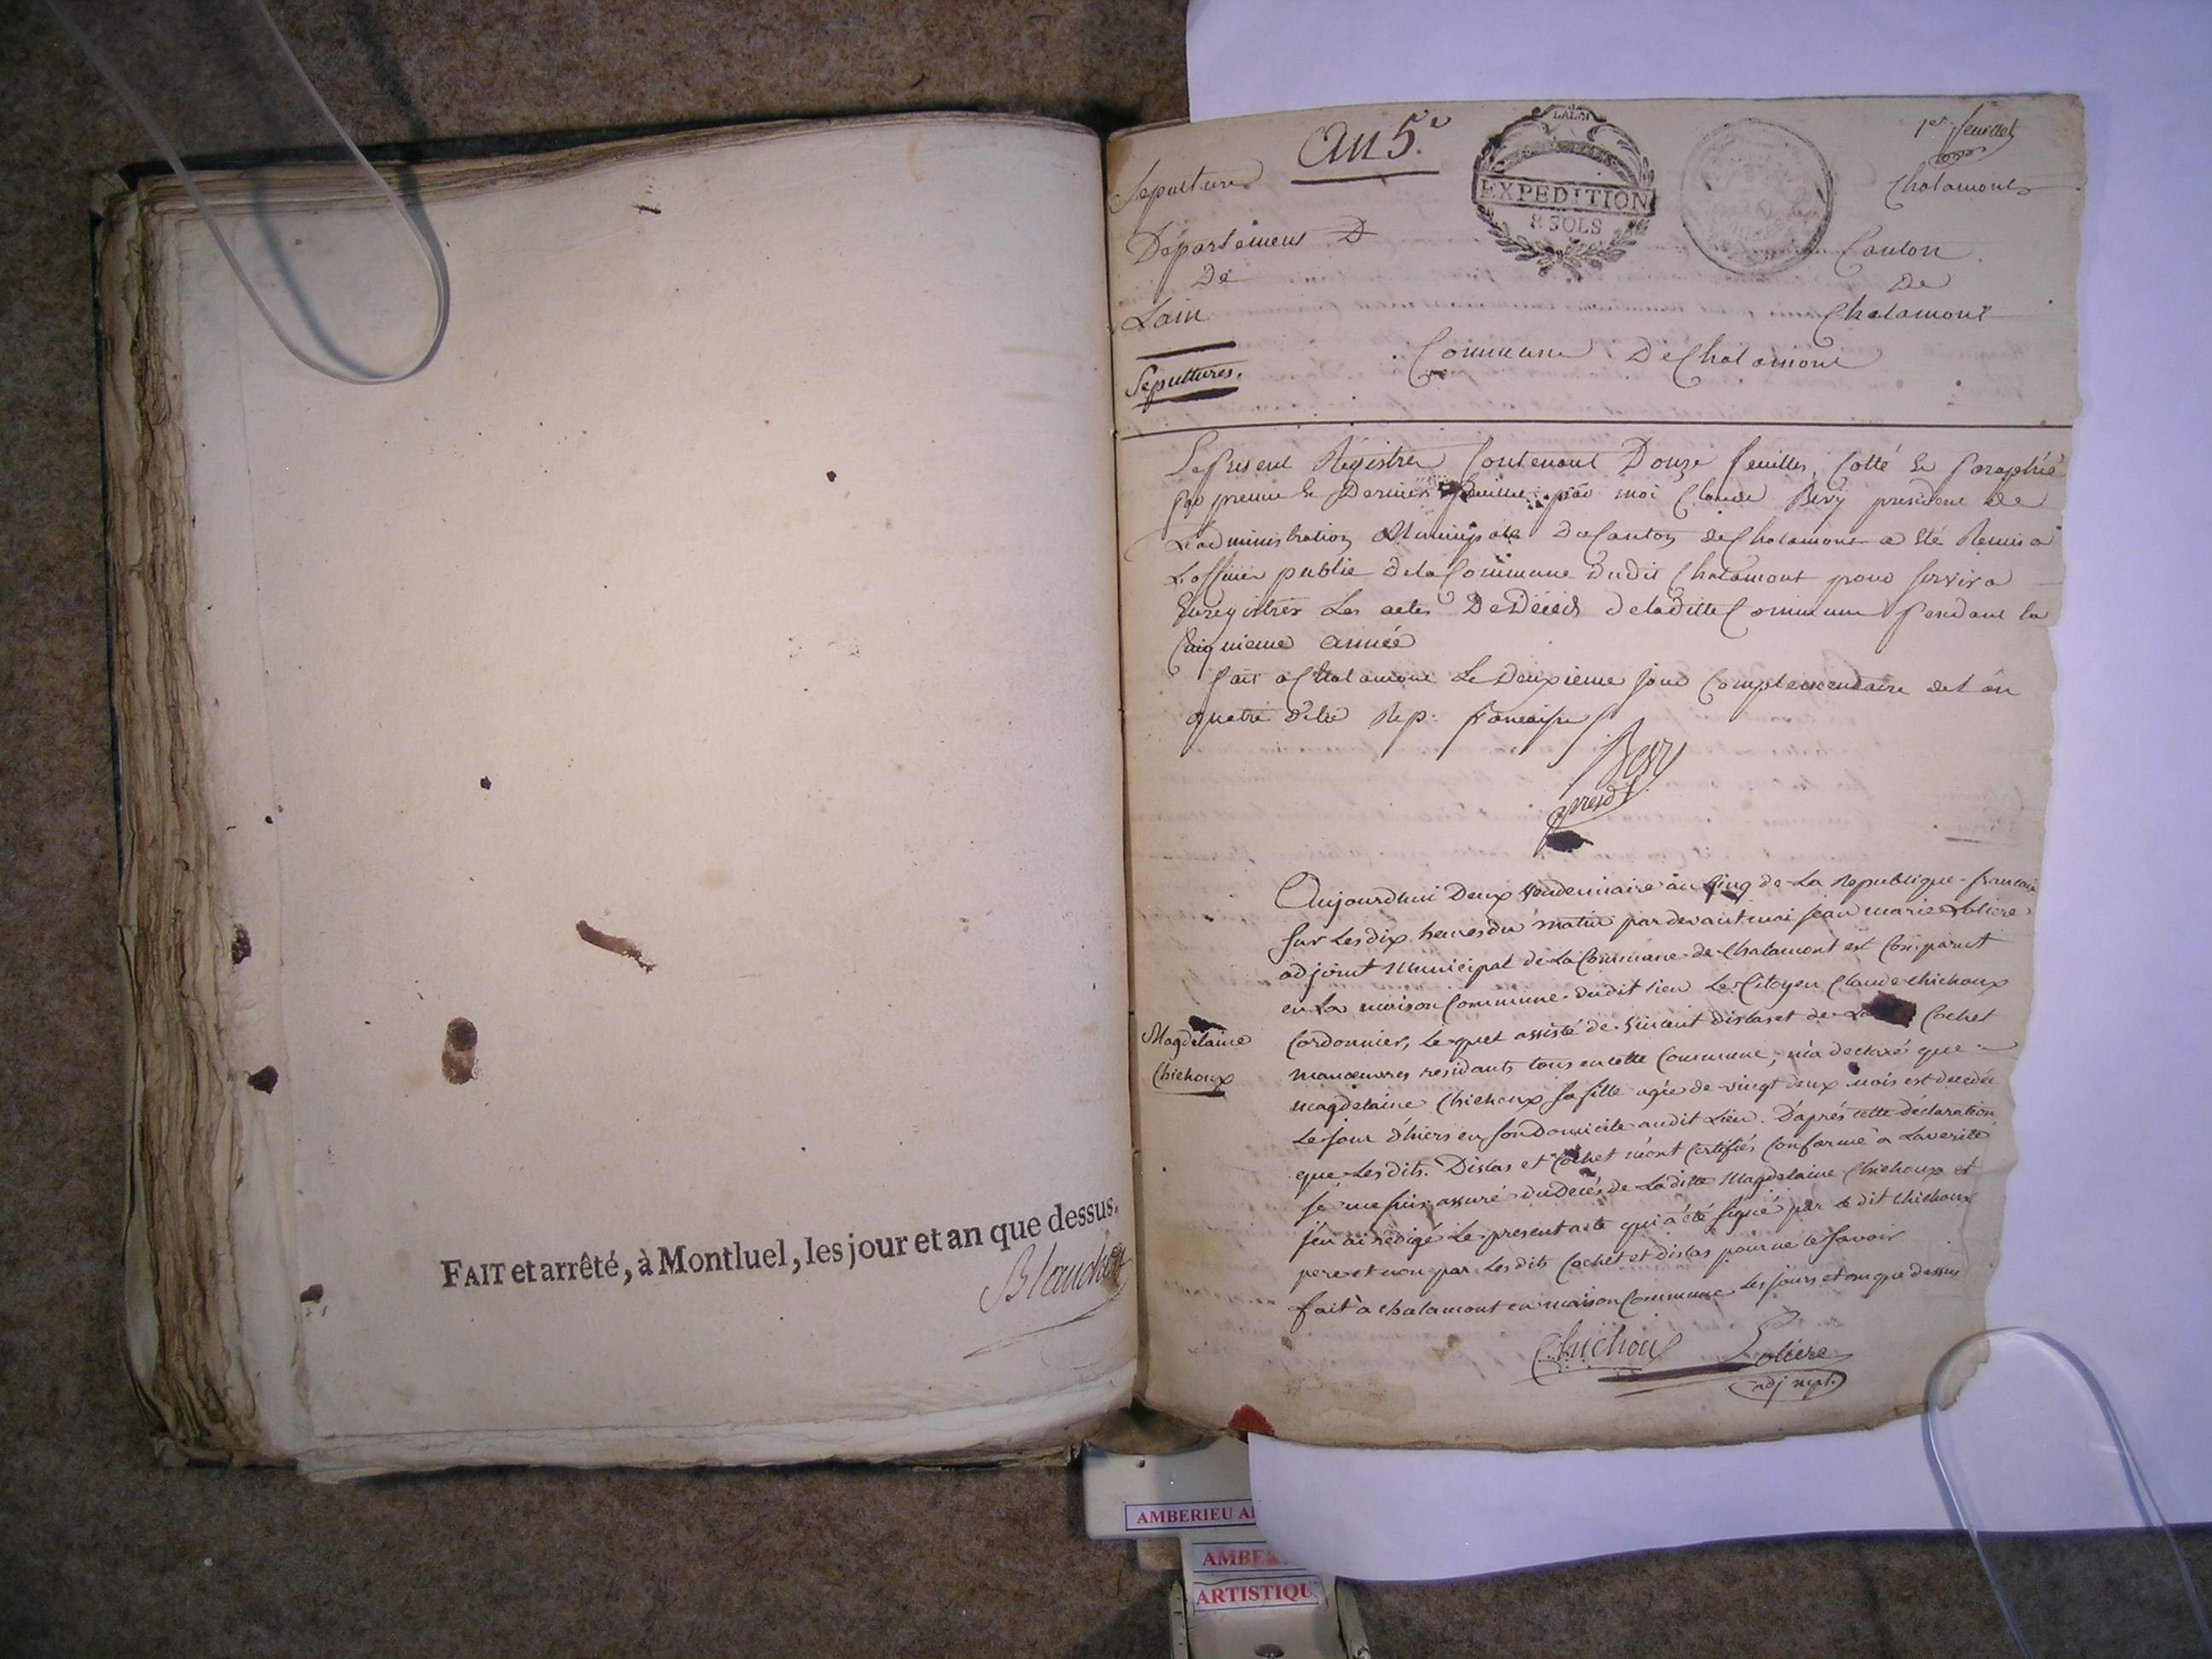 FAIT et arrêté, à Montluel, les jour et an que dessus.
Blanchet
Sepultures
an 5e
EXPEDITION
8 SOLS
1er feuillet
Chalamont
Département
De
Lain
Sepultures.
Canton
de
Chalamont
Commune De Chalamont
Le present Régistre Contenant Douze feuilles, Cotté et Paraphée
par premie et Derniere feuille par moi Claude Bévÿ president de
L'administration Municipale Du Canton de Chalamont a été Remis a
L'officier public de la Commune Dudit Chalamont pour Servir a
Enregistrer Les actes De Décès de laditte Commune Pendant la
Cinquieme année
fait a Chalamont Le Deuxieme jour Complementaire de l'an
quatre de la Rep: francaise
Bevy
presdt
Aujourdhui Deux Vendemiaire an Cinq de La Republique francaise
Sur Les dix heures du matin pardevant moi jean marie Loliere
adjoint Municipal de La Commune de Chalamont est Comparut
en La maison Commune dudit lieu Le Citoyen Claude Chichoux
Cordonnier, Lequel assisté de Vincent Dislas et de Cochet
manœuvres residants tous en cette Commune, m'a declaré que
magdelaine Chichoux sa fille agée de vingt deux mois est decedée
Le jour d'hiers en son Domicile audit Lieu. D'aprés cette déclaration
que Lesdits Dislas et Cochet m'ont Certifiés Conforme a La verité
je me suis assuré du Decés de Laditte Magdelaine Chichoux et
j'en ai rédigé Le present acte qui a été signé par Le dit Chichoux
pere et non par Les dits Cochet et Dislas pour ne le Savoir
fait à Chalamont en maison Commune Les jours et an que dessus
Magdelaine
Chichoux
Chichoux Loliere
adj mpl.
AMBERIEU A
AMBE
ARTISTIQU